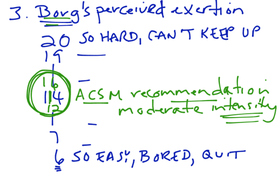 3. Borg's perceived exertion
20 SO HARD, CAN'T KEEP UP
19
16
14 ACSM recommendation
12 moderate intensity
7
6 SO EASY, BORED, QUIT